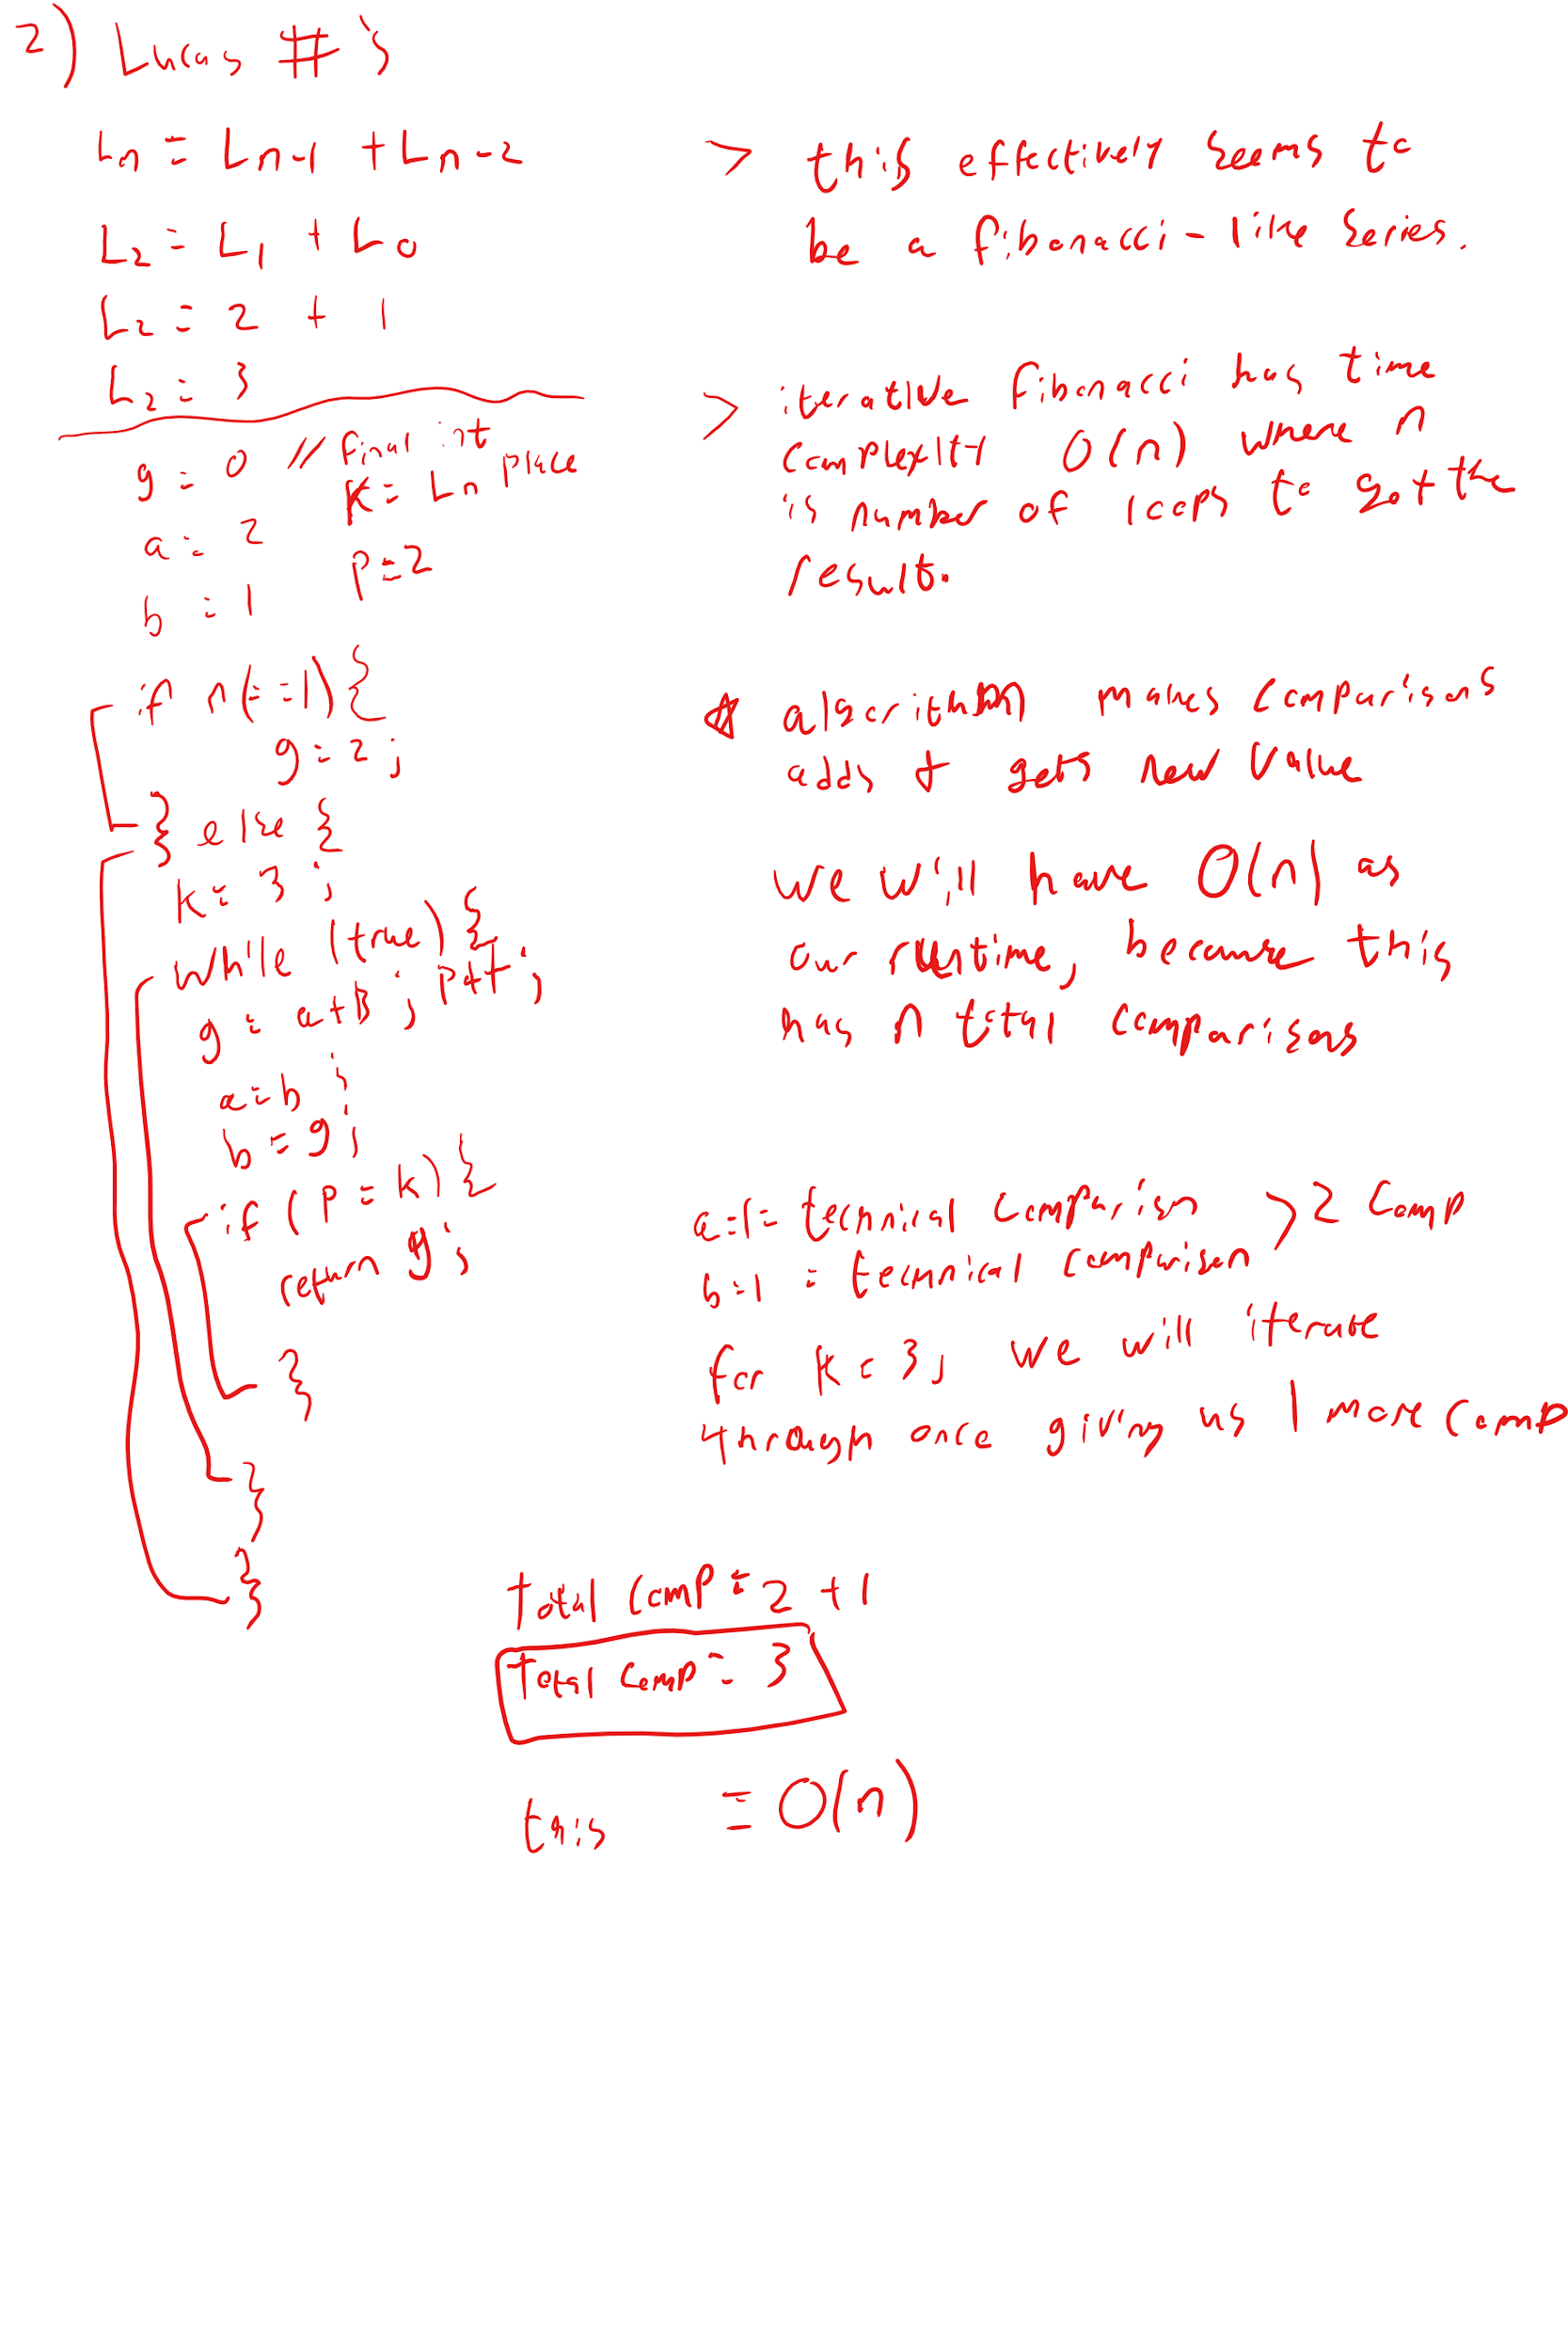 2) Lucas #'s
Ln = Ln-1 + Ln-2
L2 = L1 + L0
L2 = 2 + 1
L2 = 3
g = 0 // final int
K = Ln place
a = 2
p = 2
b = 1
if n(==1) {
g = 2;
} else {
k = 3;
while (true) {
g = a+b; p++;
a=b;
b=g;
if (p = k) {
return g;
}
}
}
> this effectively seems to
be a fibonacci-like series.
> iterative fibonacci has time
complexity O(n) where n
is number of loops to got the
result.
algorithm makes comparisons
adds + gets new value
we will have O(n) as
our runtime, because this
has n total comparisons
a=1= technical comparison > 2 comp
b=1 = technical comparison
for K=3, we will iterate
through once giving us 1 more comp
Total comp = 2 + 1
Total comp = 3
this = O(n)